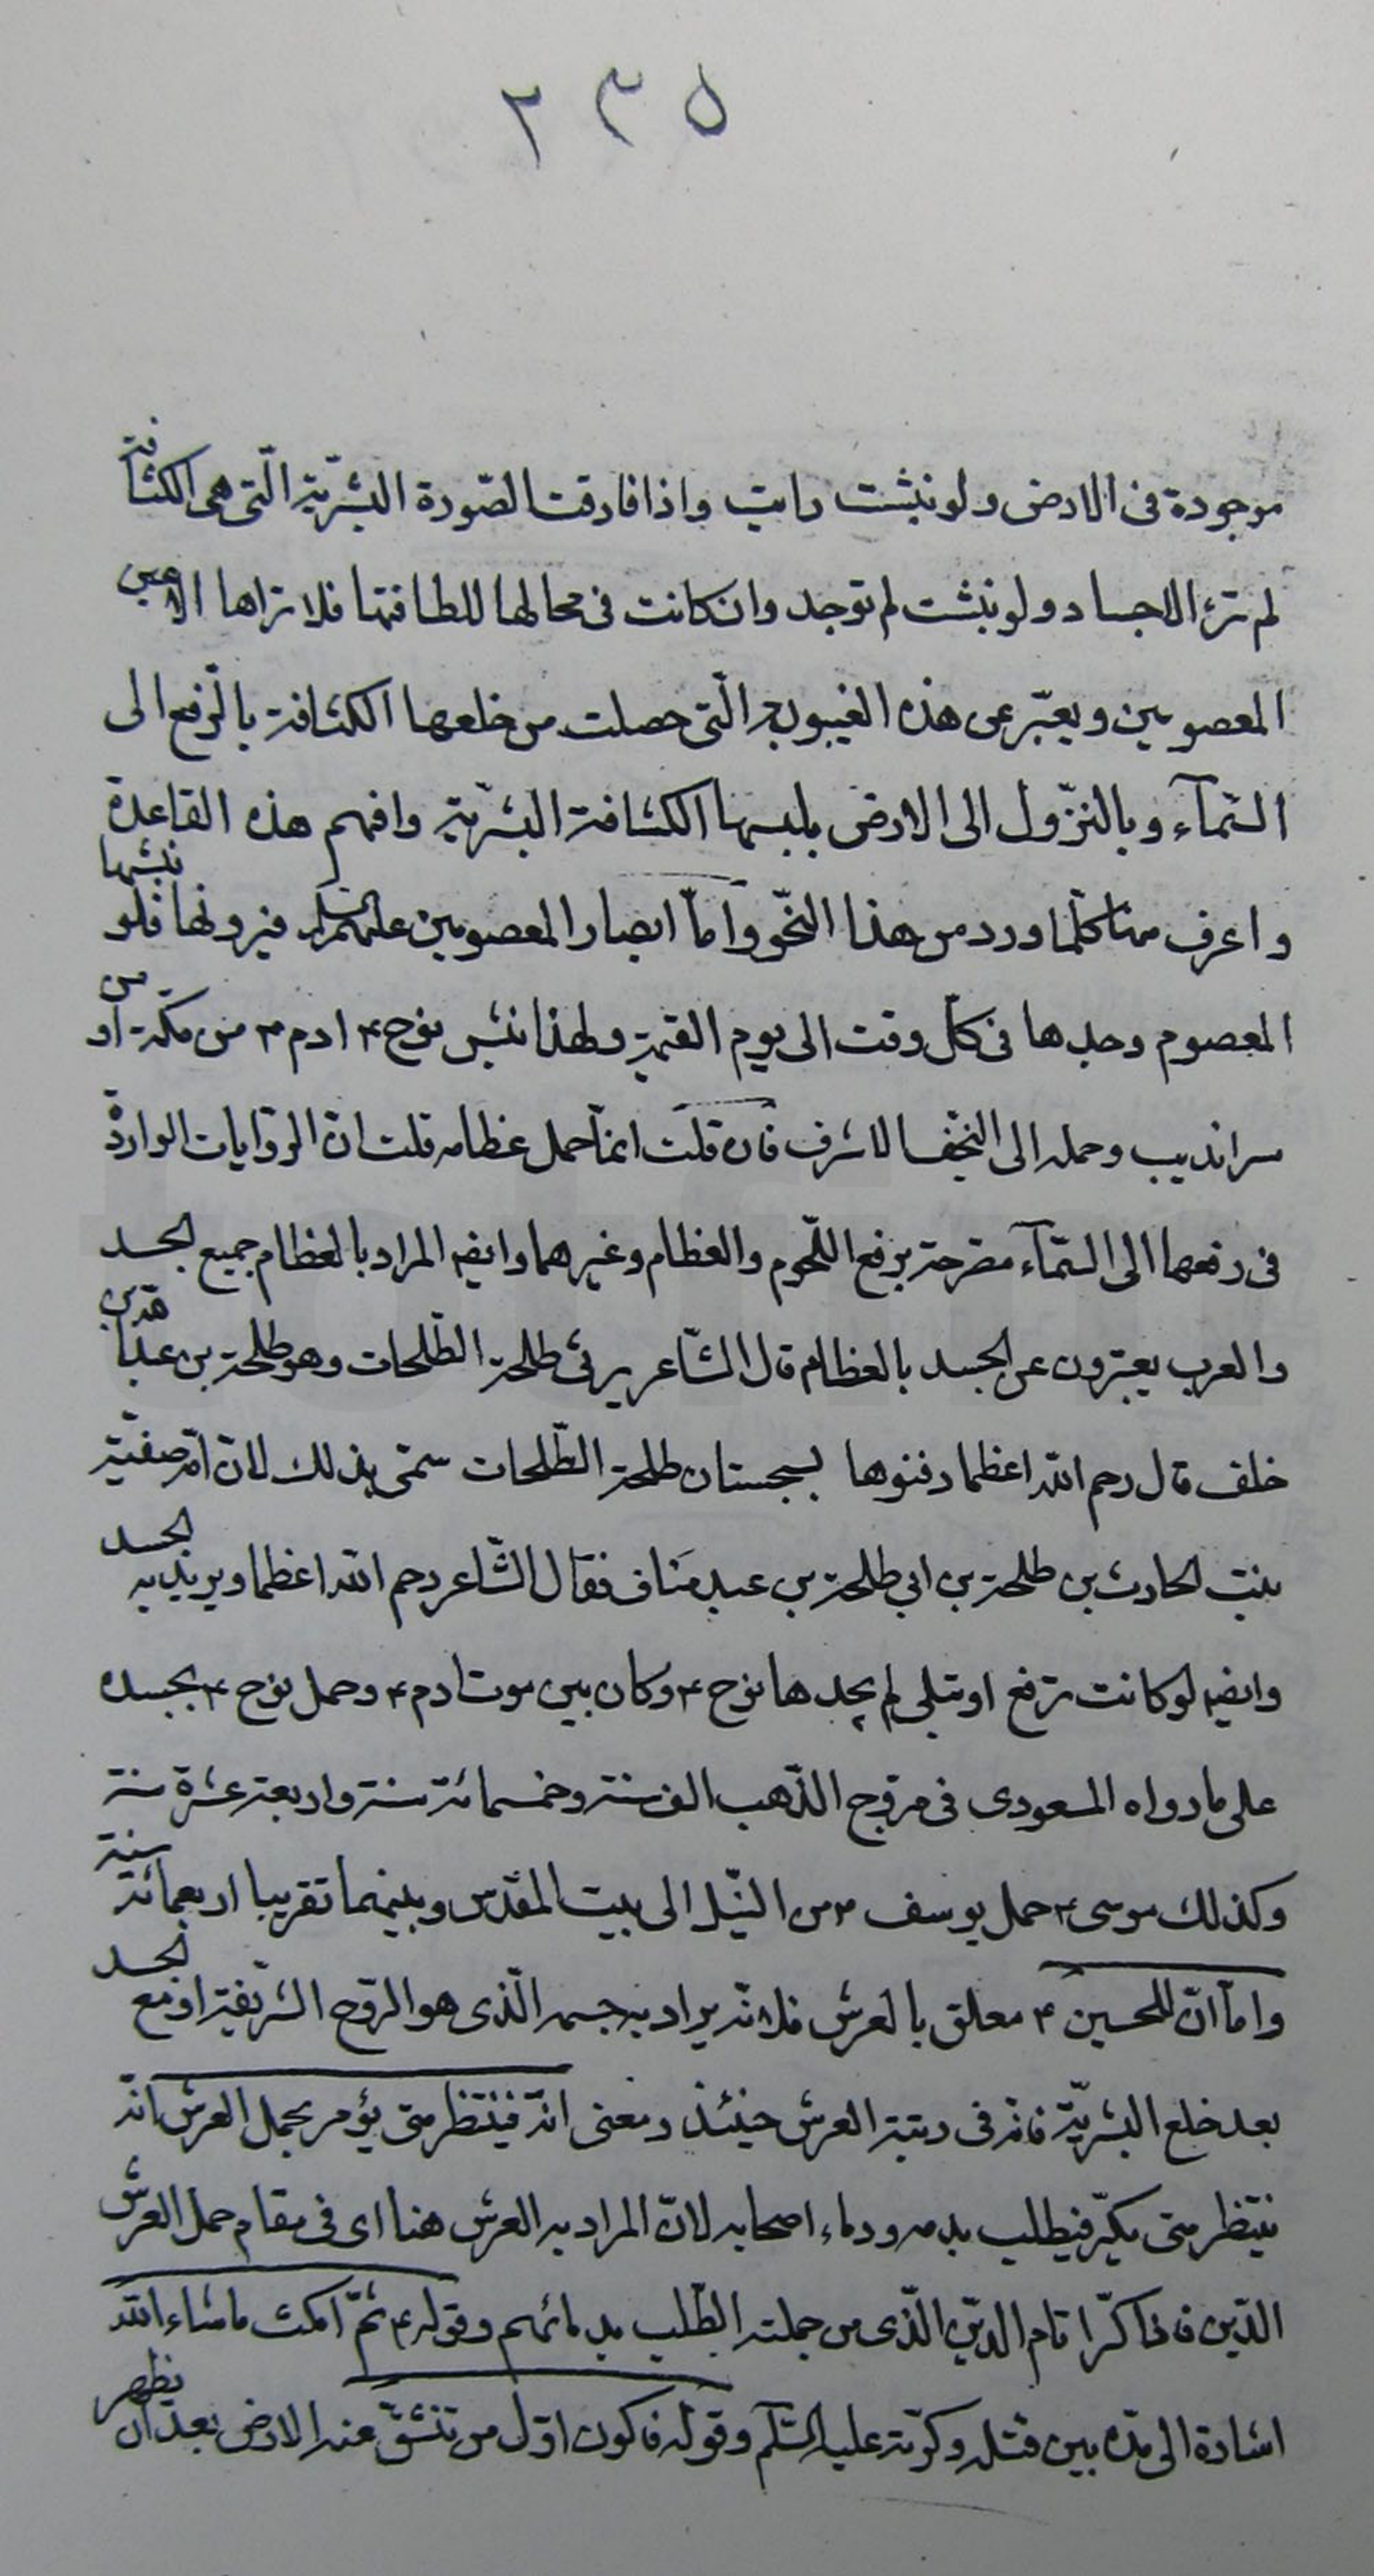 ٢٣٥
موجودة فى الارض ولو نبشت رايت واذا فارقت الصّورة البشريّة الّتى هى الكثافة
لم ترء الاجساد ولو نبشت لم توجد وان كانت فى محالها للطافتها فلا تراها الا عين
المعصومين ويعبّر عن هذه الغيبوبة الّتى حصلت من خلعها الكثافة بالرّفع الى
السّمآء وبالنزّول الى الارض بلبسها الكثافة البشريّة وافهم هذه القاعدة
واعرف منا كلّما ورد من هذا النّحو وامّا ابصار المعصومين عليهم السلام فيرونها فلو نبشها
المعصوم وجدها فى كلّ وقت الى يوم القيمة ولهذا نبش نوح ٤ ادم ٤ من مكّة او من
سرانديب وحمله الى النجّف الاشرف فان قلت انمّا حمل عظامه قلت انّ الرّوايات الواردة
فى رفعها الى السّمآء مصّرحة برفع اللّحوم والعظام وغيرهما وايضا المراد بالعظام جميع الجسد
والعرب يعبّرون عن الجسد بالعظام قال الشّاعر يرثى طلحة الطّلحات وهو طلحة بن عبدا
خلف قال رحم الله اعظما دفنوها بسجستان طلحة الطّلحات سمّى بذلك لانّ امّه صفيّة
بنت الحارث بن طلحة بن ابي طلحة بن عبد مَناف فقال الشّاعر رحم الله اعظما ويريد به الجسد
وايضا لو كانت ترفع او تبلى لم يجدها نوح ٤ وكان بين موت ادم ٤ وحمل نوح ٤ بجسده
على ما رواه المسعودى فى مروّج الذّهب الف سنة وخمسمائة سنة واربعة عشرة سنة
وكذلك موسى ٤ حمل يوسف ٤ من النّيل الى بيت المقدّس وبينهما تقريبا اربعمائة سنة
وامّا انّ الحسين ٤ معلق بالعرش فلانّه يراد به جسمه الّذى هو الرّوح الشّريفة او مع الجسد
بعد خلع البشريّة فانه فى رتبة العرش حينئذ ومعنى انّه فينتظر متى يؤمر بحمل العرش انّه
ينتظر متى يكرّ فيطلب بدمه ودماء اصحابه لانّ المراد به العرش هنا اى فى مقام حمل العرش
الدّين فاذا كرّا قام الدّين الّذى من جملته الطّلب بدمائهم وقوله ٤ ثمّ امكث ما شاء الله
اشارة الى مدّه بين قتله وكرّته عليه السّلم وقوله فاكون اوّل من تنشقّ عنه الارض بعد ان يظهر